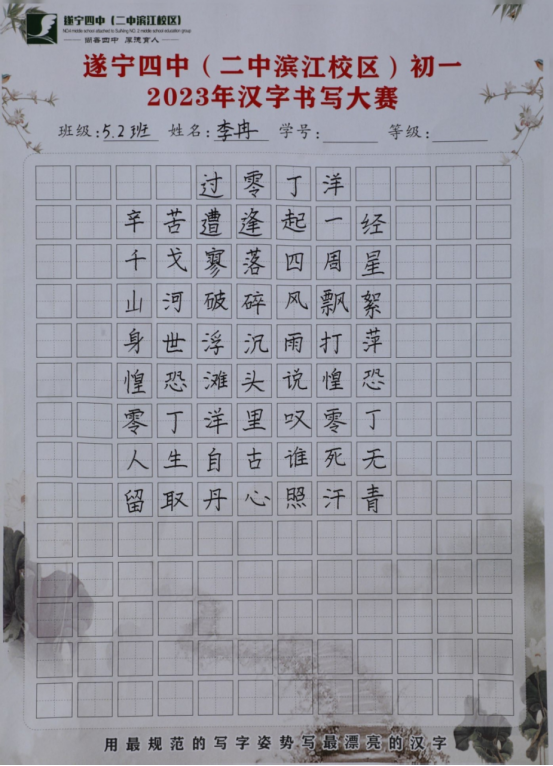 遂宁四中（二中滨江校区）
遂宁四中（二中滨江校区）初一
2023年汉字书写大赛
班级：5.2班 姓名：李冉 学号： 等级：
过零丁洋
辛苦遭逢起一经
干戈寥落四周星
山河破碎风飘絮
身世浮沉雨打萍
惶恐滩头说惶恐
零丁洋里叹零丁
人生自古谁死无
留取丹心照汗青
用最规范的写字姿势写最漂亮的汉字